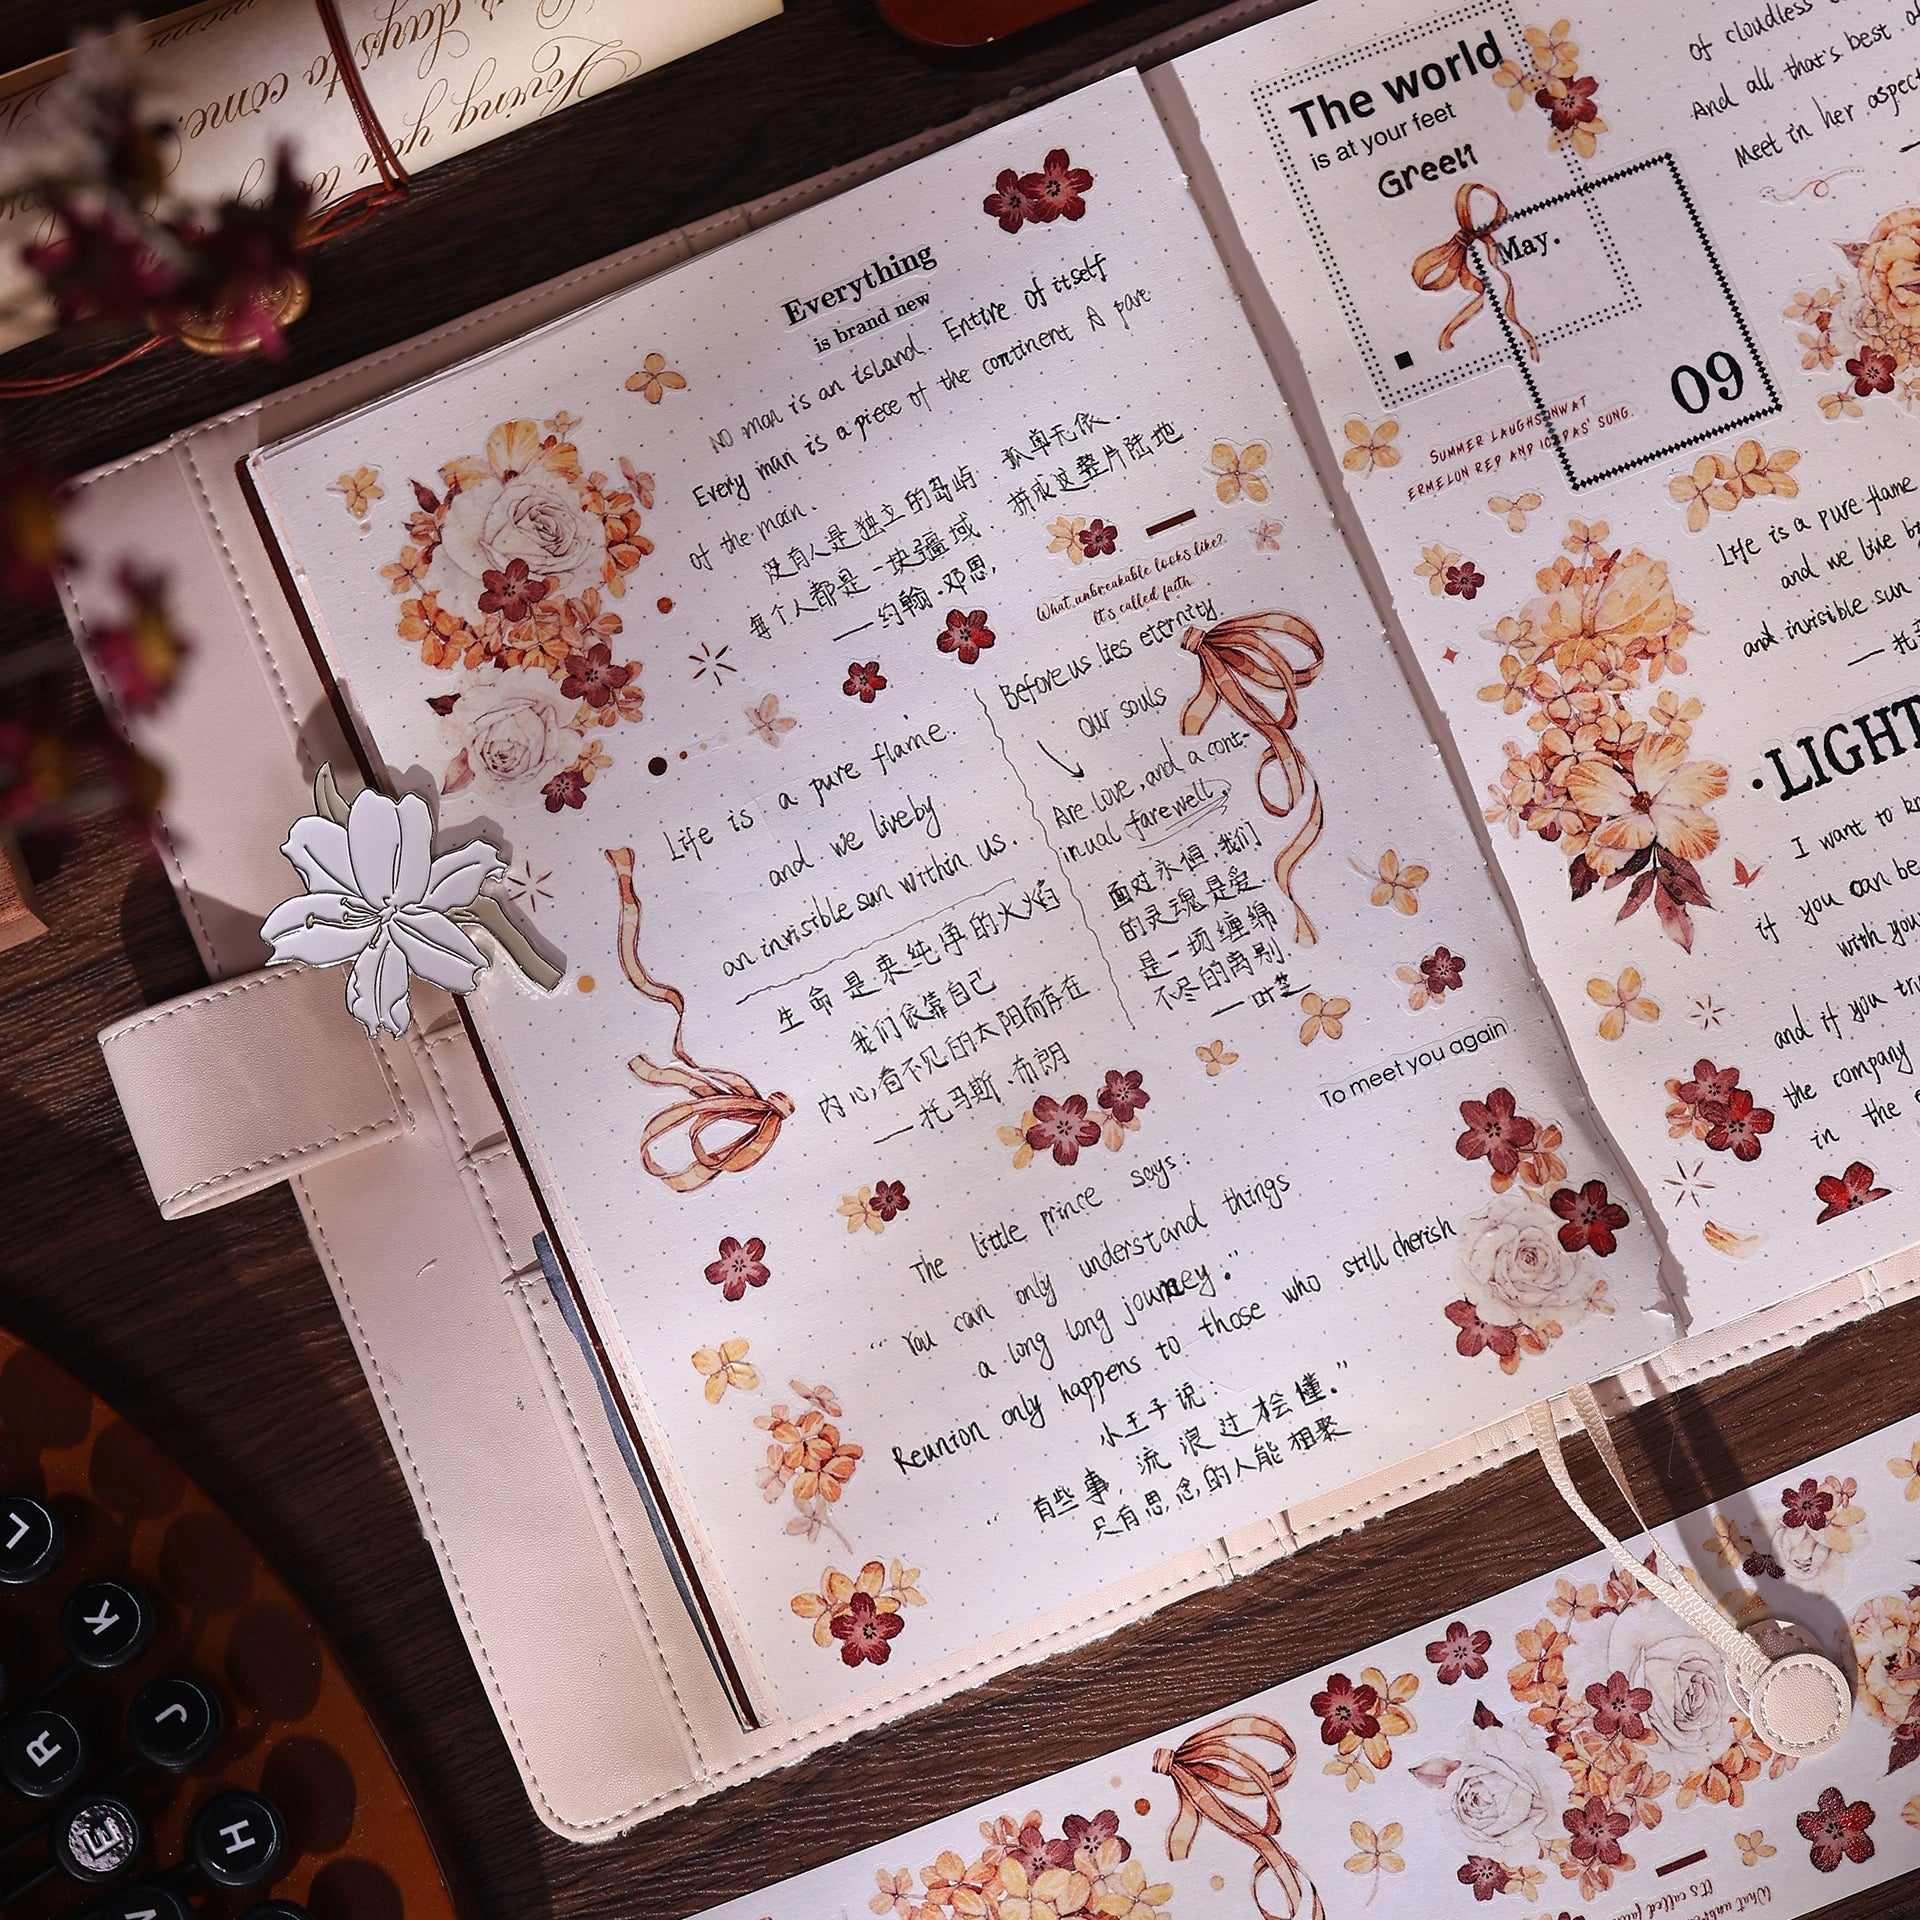 Loving you to
days to
come.
Everything
is brand new
No man is an island. Entire of itself
Every man is a piece of the continent A pare
of the main.
没有人是独立的岛屿. 孤单无依.
每个人都是一块疆域. 拼成这整片陆地
——约翰·邓恩,
What unbreakable looks like?
It's called faith.
Life is a pure flame.
and we live by
an invisible sun within us.
生命是束纯净的火焰
我们依靠自己
内心,看不见的太阳而存在
——托马斯·布朗
Before us lies eternity
our souls
Are love, and a cont-
inual farewell.
面对永恒,我们
的灵魂是爱.
是一场缠绵
不尽的离别.
—叶芝
To meet you again
The little prince says:
"You can only understand things
a long long journey."
Reunion only happens to those who still cherish
小王子说:
"有些事,流浪过才会懂."
只有思念的人能相聚
The world
is at your feet
Green
May.
09
SUMMER LAUGHS NWAT
ERMELON RED AND ICADAS' SUNG.
of cloudless
And all that's best of
Meet in her aspect
Life is a pure flame
and we live by
and invisible sun
——托
·LIGHT
I want to
if you can be
with you
and if you
the company
in the
L
K
J
R
E
H
It's called
What